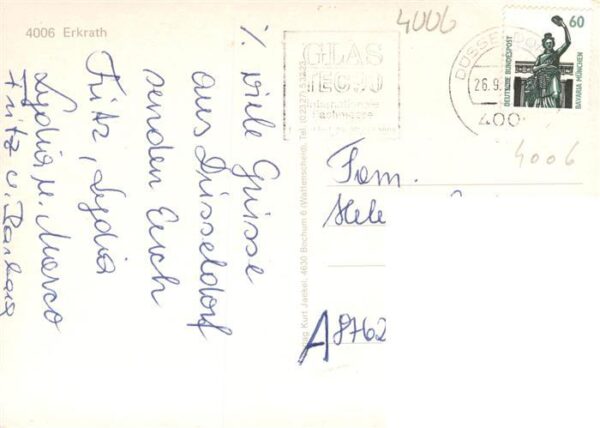 4006 Erkrath
4006
GLAS
Internationale
Fachmesse
DÜSSELDO
26.9.
400
60
DEUTSCHE BUNDESPOST
BAVARIA MÜNCHEN
4006
Viele Grüsse
aus Düsseldorf
senden Euch
Fritz, Lydia
Lydia u. Marco
Fritz u. Barbara
Kurt Jaekel, 4630 Bochum 6 (Wattenscheid), Tel. (02327)
Fam.
Hele
A 8762